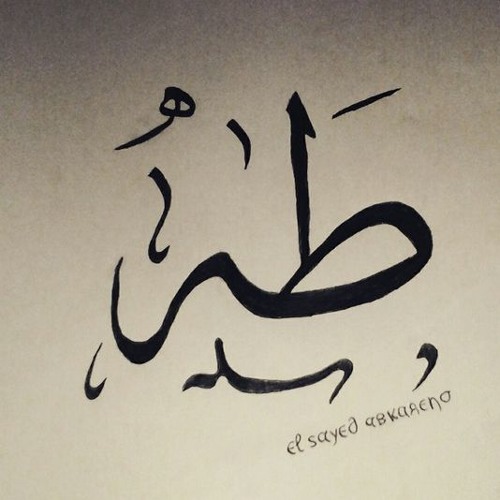 طه
el sayed abkareno